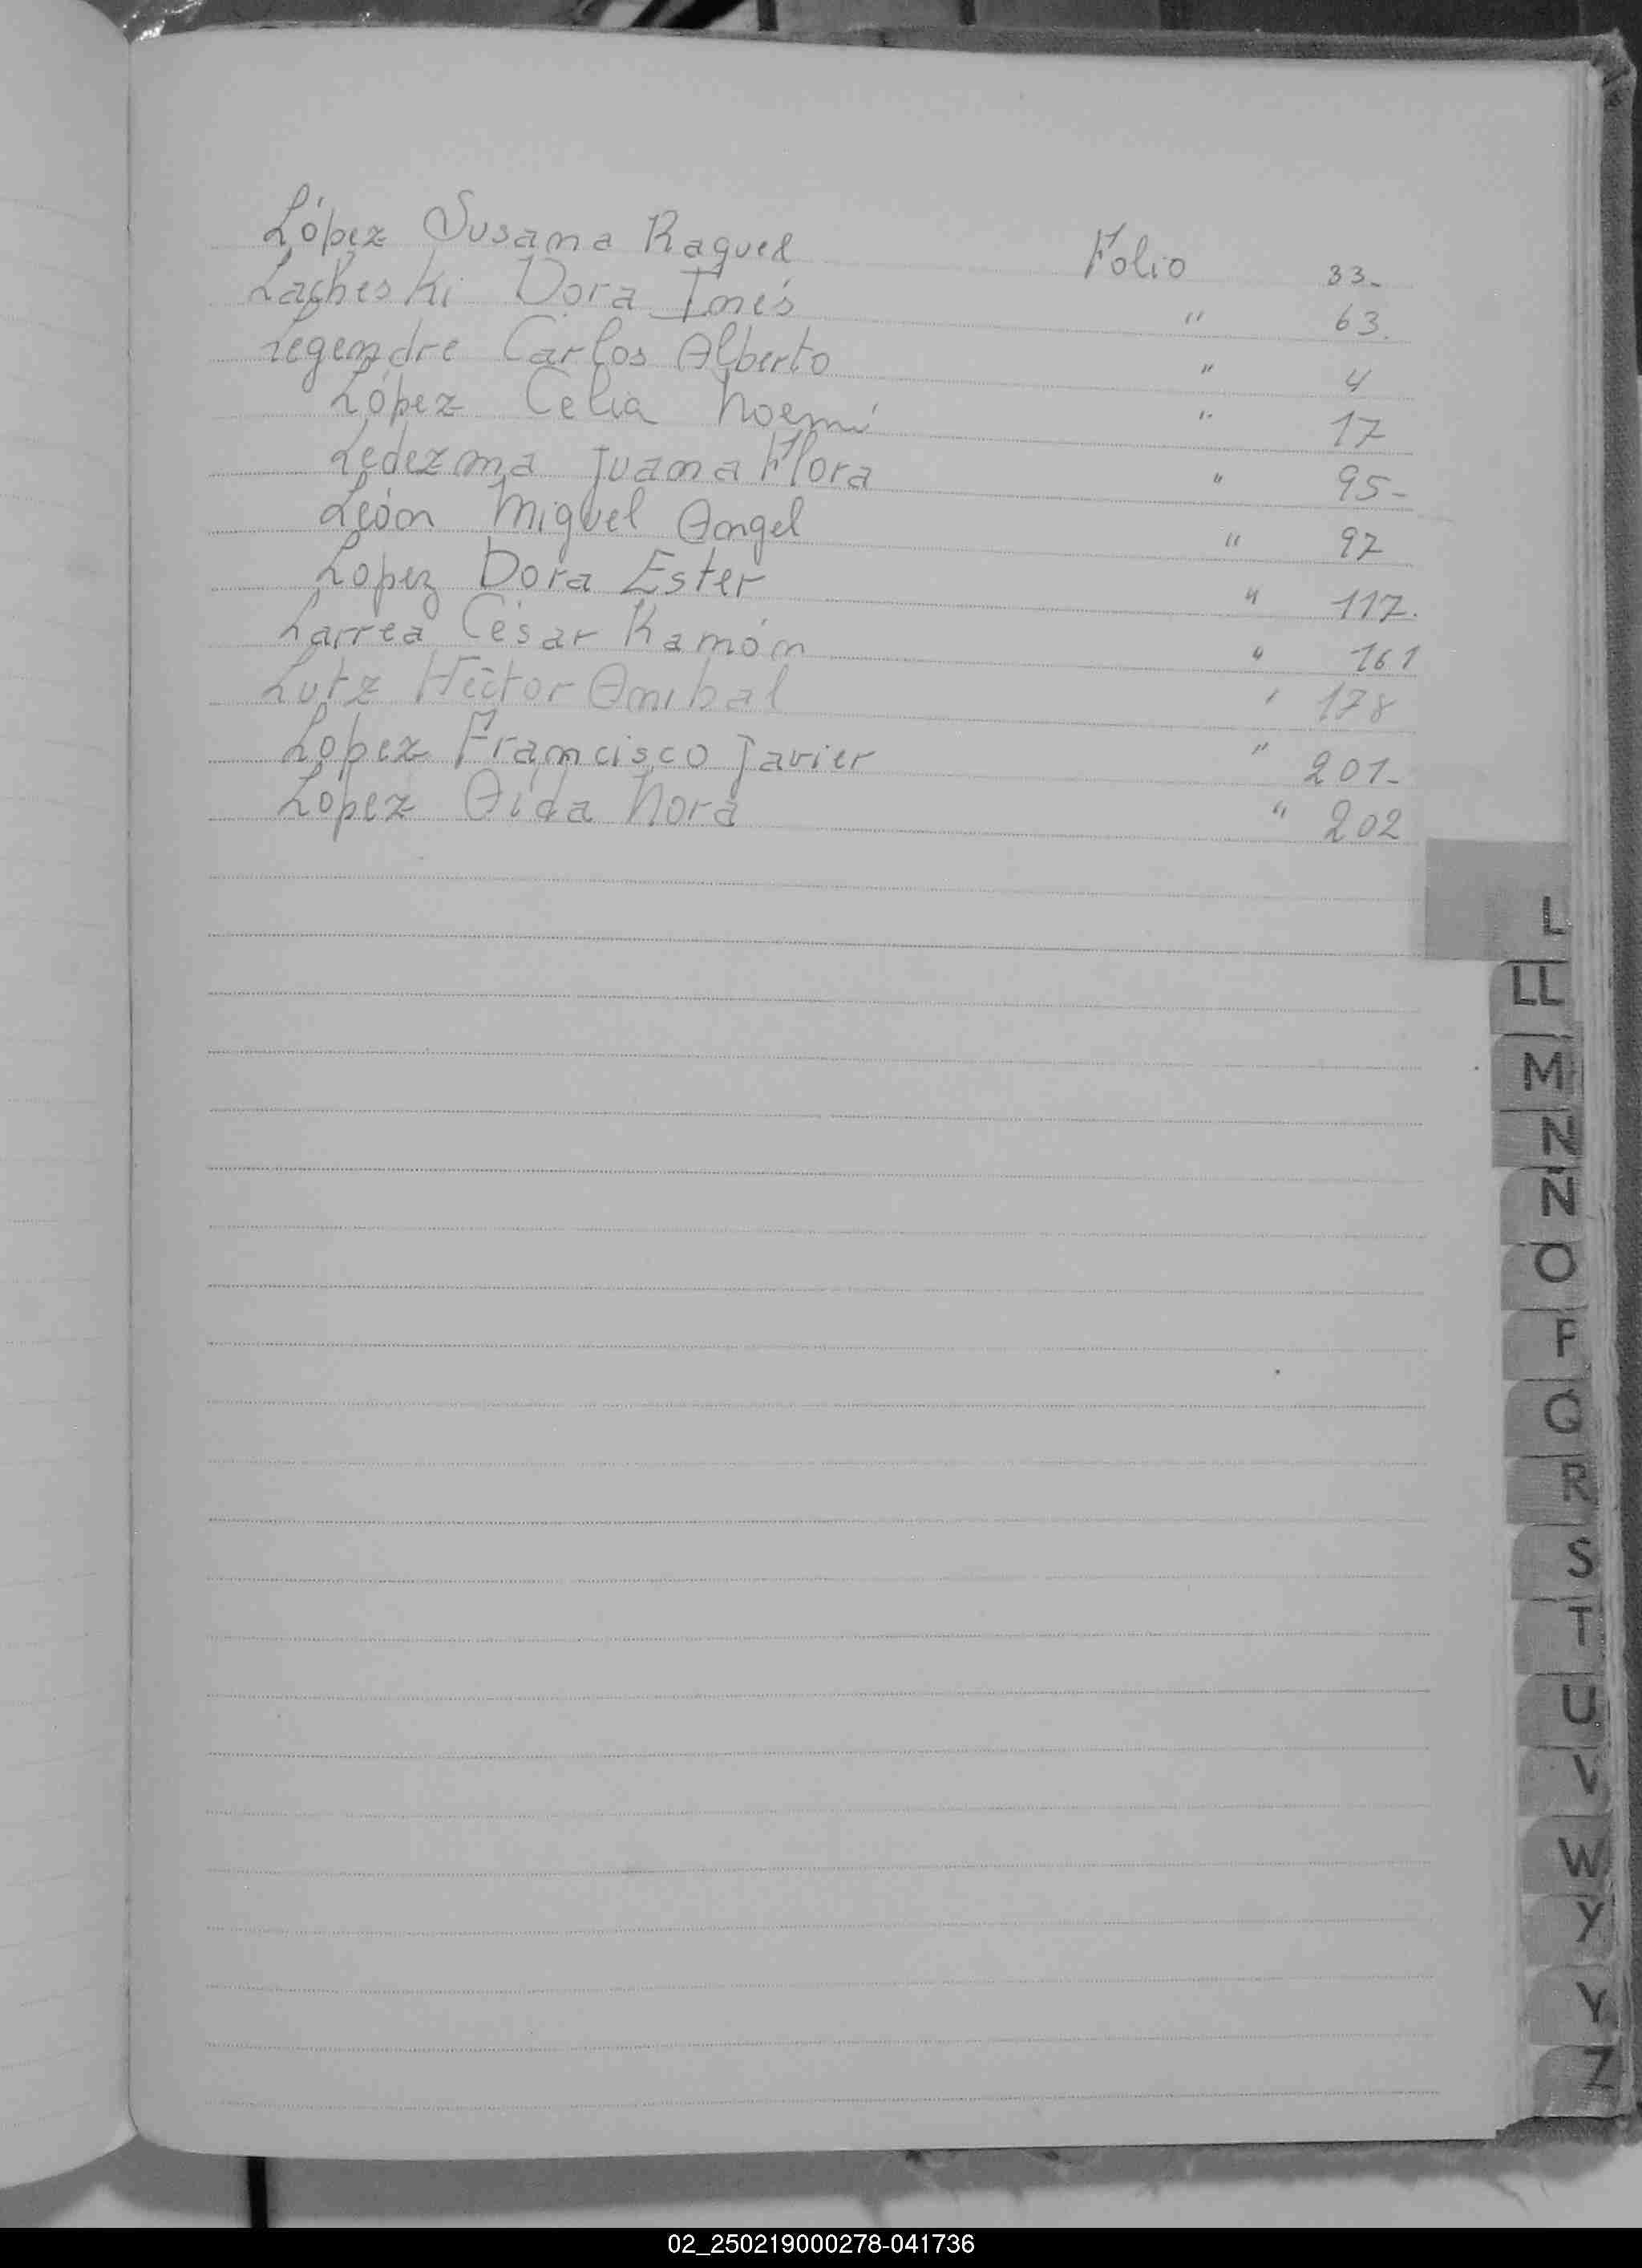 López Susana Raquel Folio 33-
Lacheski Dora Inés " 63.
Legendre Carlos Alberto " 4
López Celia Noemí " 17
Ledezma Juana Flora " 95-
León Miguel Angel " 97
Lopez Dora Ester " 117.
Larrea César Ramón " 161
Lutz Héctor Anibal " 178
Lopez Francisco Javier " 201-
Lopez Aída Nora " 202
L
LL
M
N
Ñ
O
P
Q
R
S
T
U
V
W
Y
Y
Z
02_250219000278-041736